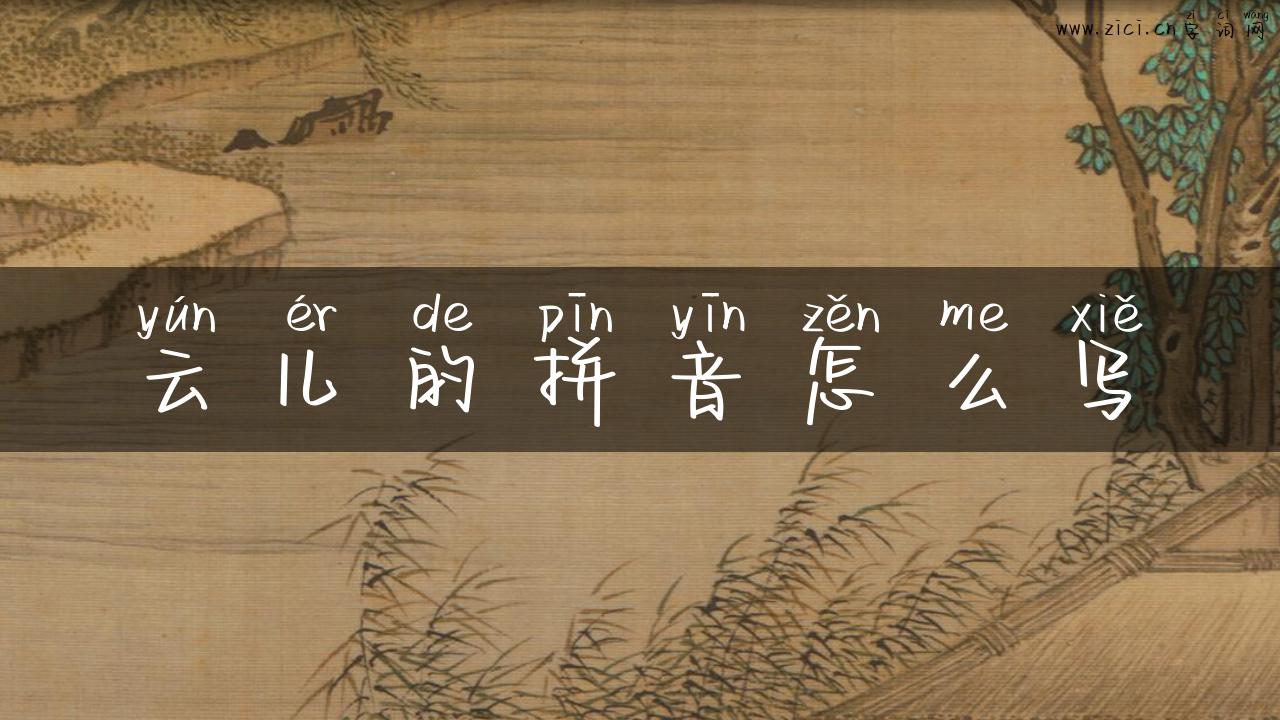 zì cí wǎng
www.zici.cn 字词网
yún ér de pīn yīn zěn me xiě
云儿的拼音怎么写